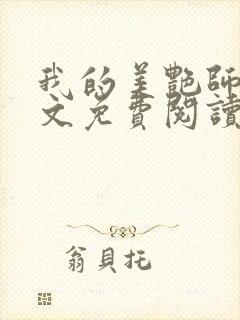 我的美艷師
文免費閱讀
翁貝托